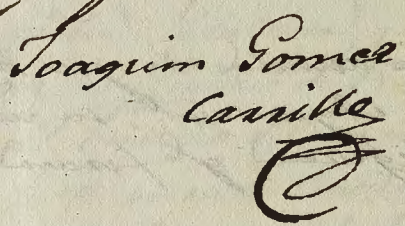 Joaquim Gomez
Carrillo